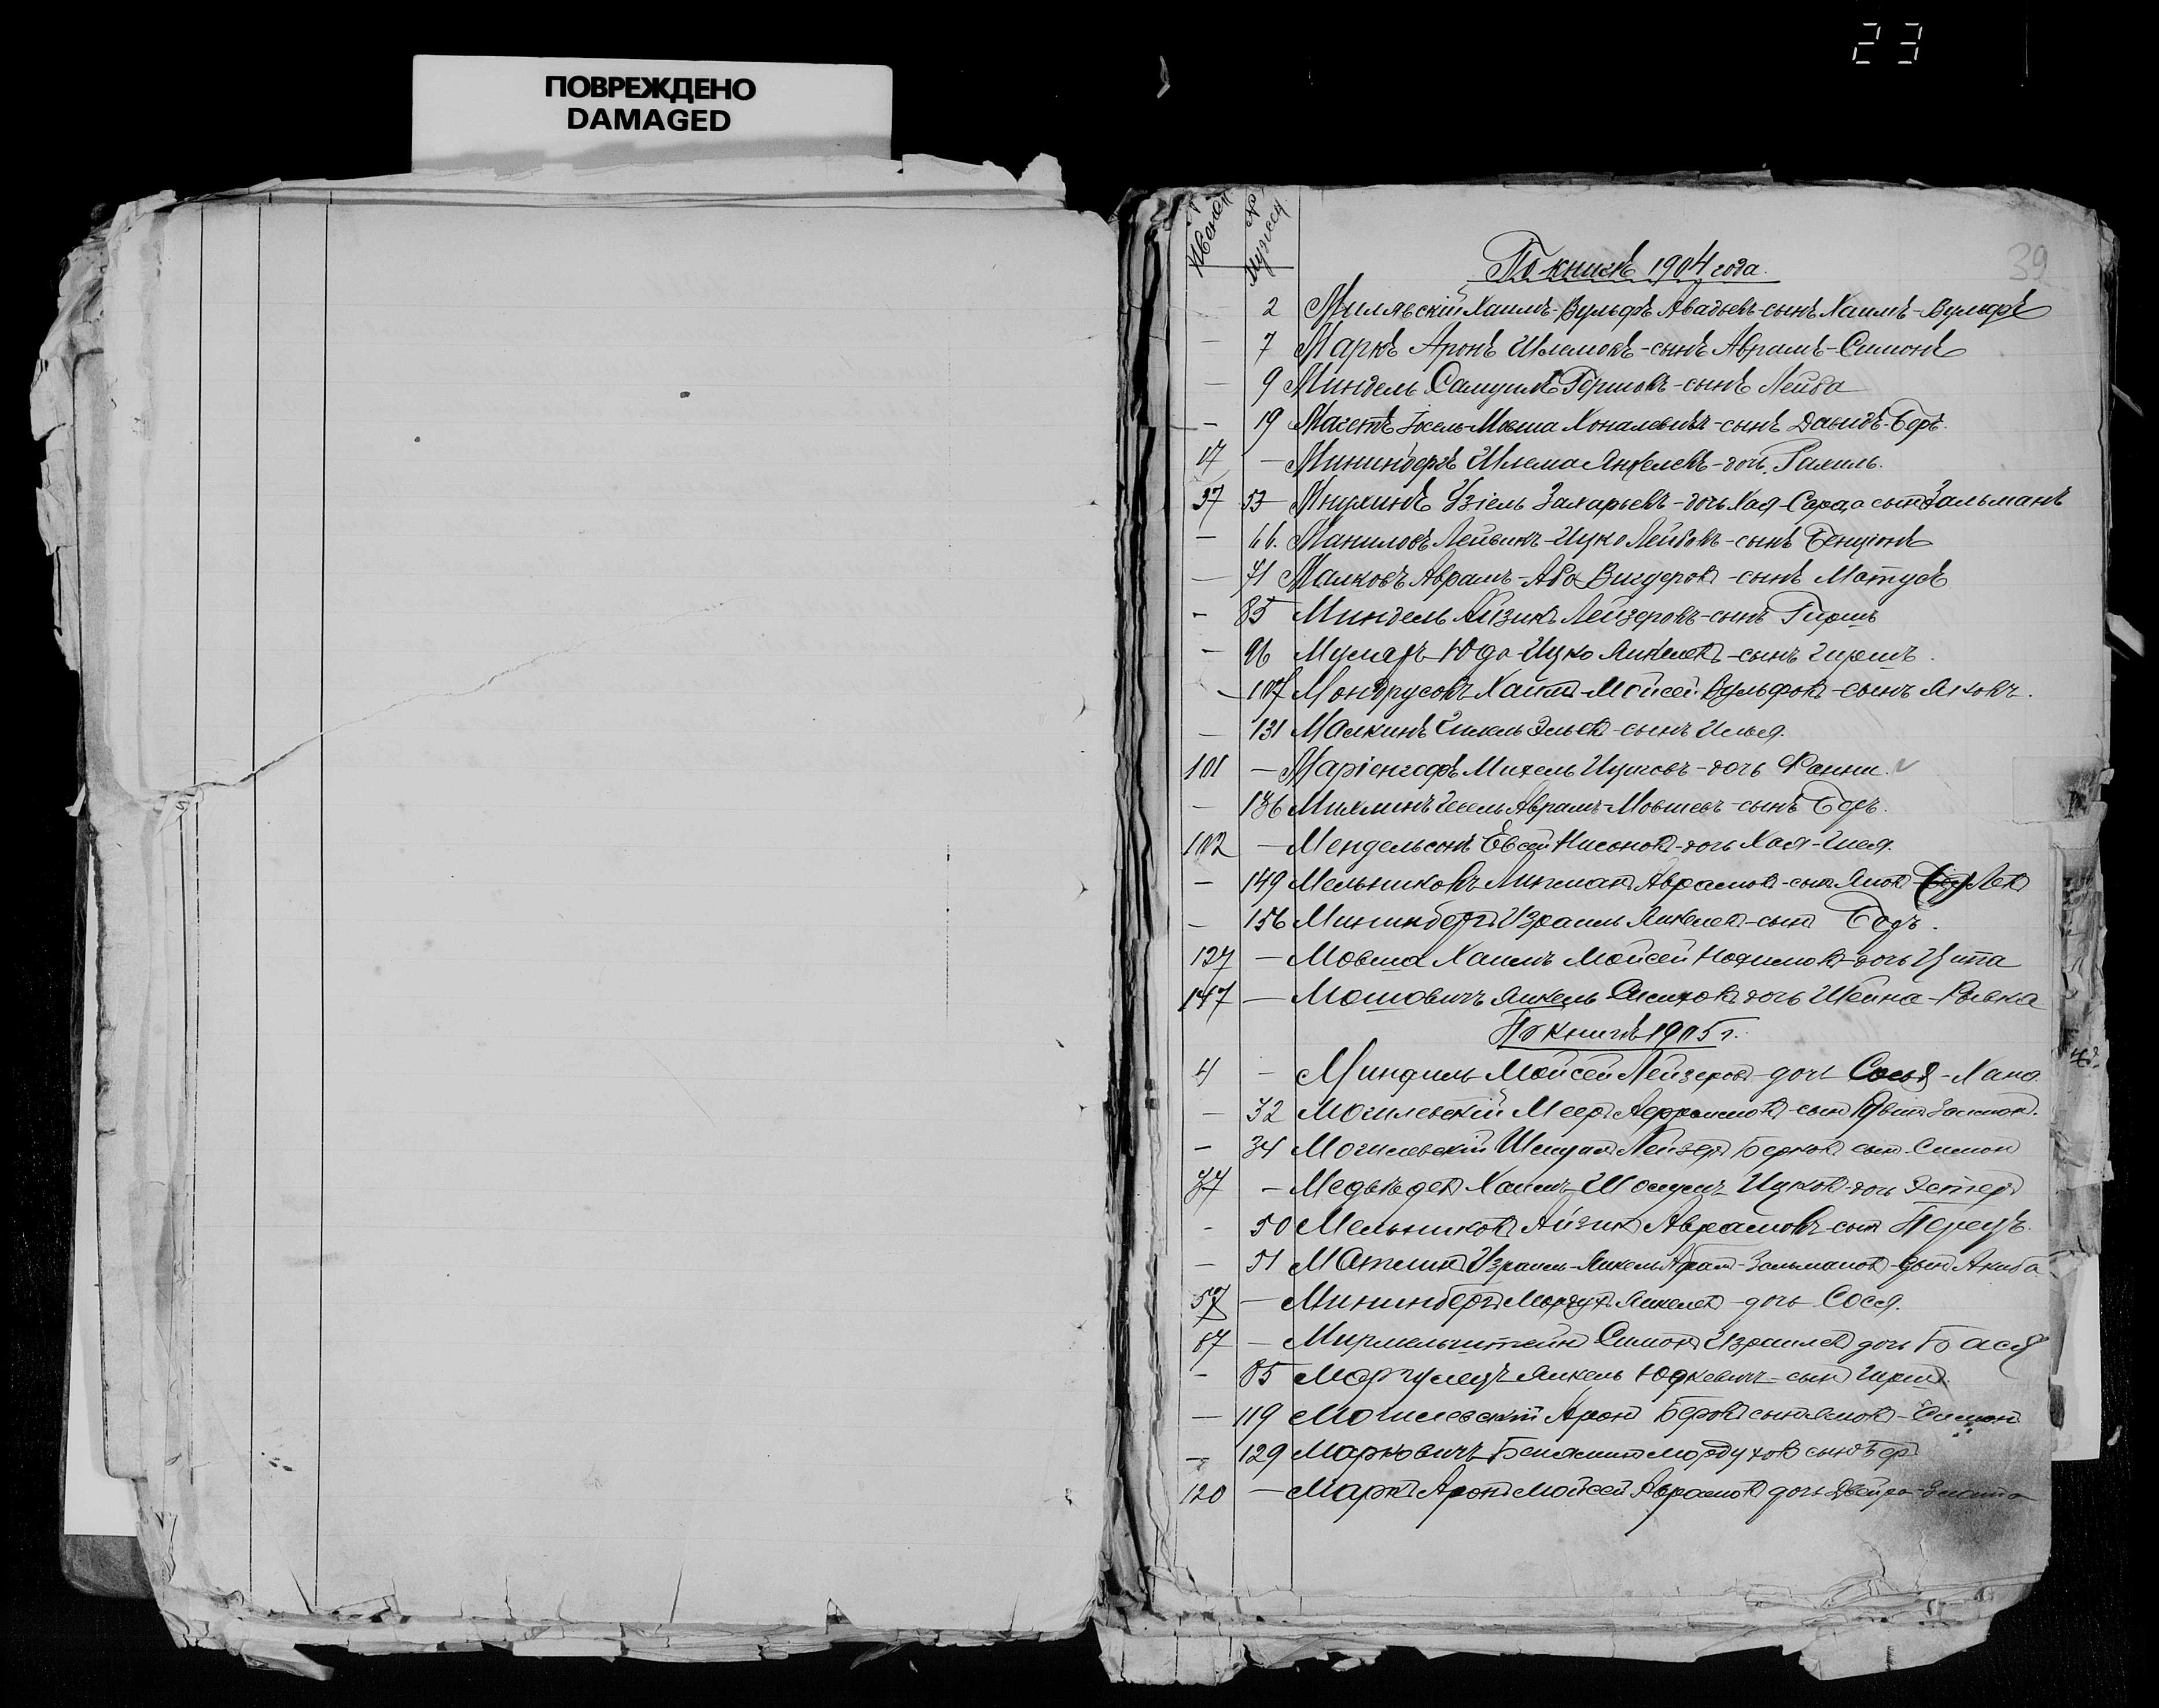 23
ПОВРЕЖДЕНО
DAMAGED
39
№ Женск № Мужск
По книгѣ 1904 года.
— 2 Милявскій Хаимъ-Вульфъ Авадьевъ-сынъ Хаимъ-Вульфъ
— 7 Маркъ Аронъ Шлемовъ-сынъ Аврамъ-Симонъ
— 9 Миндель Самуилъ Гершовъ-сынъ Лейба
— 19 Іосель-Мовша -сынъ Давидъ-Беръ.
17 — Минингбергъ Шлема Янкелевъ-дочь Рахиль.
37 53 Мнухинъ Узіель Захарьевъ-дочь Хая-Сара, а сынъ Зальманъ
— 66. Маниловъ Лейвикъ-Ицко Лейбовъ-сынъ Бенціонъ
— 71 Малковъ Аврамъ-Аба Вигдоровъ-сынъ Матусъ
— 85 Миндель Айзикъ Лейзеровъ-сынъ Гиршъ
— 96 Юда-Ицко Янкелевъ-сынъ Гиршъ.
— 107 Мондрусовъ Хаимъ-Мойсей Вульфовъ-сынъ Яковъ.
— 131 Малкинъ Эльевъ-сынъ Илья.
101 — Маріенгофъ Михель Ицковъ-дочь Фанни.
— 136 Михлинъ Аврамъ-Мовшевъ-сынъ Беръ.
102 — Мендельсонъ Евсей Нисоновъ-дочь Хая-
— 149 Мельниковъ Липманъ Аврамовъ-сынъ
— 156 Минингбергъ Израиль Янкелевъ-сынъ Беръ.
127 — Мовша Хаимъ Мойсей Нохимовъ-дочь Ципа
147 — Мошовичъ Янкель дочь Шейна-Рывка
По книгѣ 1905 г.
4 — Миндиль Мойсей Лейзеровъ-дочь Сося-Хана
— 32 Могилевскій Мееръ -сынъ
— 34 Могилевскій Шмуилъ Лейзеръ Берковъ сынъ Симонъ
37 — Медвѣдевъ Хаимъ-Шомуилъ Ицковъ-дочь Эстеръ
— 50 Мельниковъ Айзикъ Аврамовъ-сынъ Перецъ.
— 51 Матлинъ Израиль-Янкель Абрамъ-Зальмановъ-сынъ Акиба
57 — Минингбергъ Мордухъ Янкелевъ-дочь Сося.
87 — Мирмельштейнъ Симонъ Израилевъ дочь Бася
— 85 Маргулецъ Янкель Юдкевичъ-сынъ Гиршъ.
— 119 Могилевскій Аронъ Беровъ сынъ -Симонъ
— 129 Марковичъ Беньяминъ Мордуховъ сынъ Беръ
120 — Маркъ Аронъ Мойсей Аврамовъ дочь Двейра-Злата